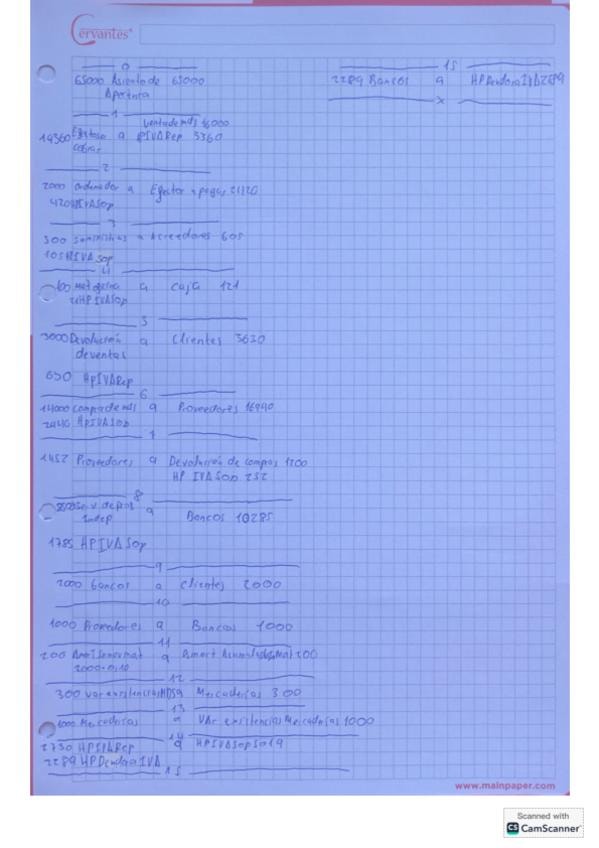 Cervantes
0
65000 Asiento de 65000
Apertura
1
Venta de mds 16000
19360 Efectos a PIVARep 3360
cobrar
2
2000 Ordenador a Efector a pagar
420 HPIVASop
3
300 Suministros a Acreedores 605
105 HPIVA Sop
4
100 Mat oficina a Caja 121
21 HP IVASop
5
3000 Devolución a Clientes 3630
de ventas
630 HPIVARep
6
14000 Compra de mds a Proveedores 16940
HPIVASop
7
1452 Proveedores a Devolución de compras 1200
HP IVASop 252
8
Serv de pros a Bancos 10285
Indep
1785 HPIVA Sop
9
2000 Bancos a Clientes 2000
10
1000 Proveedores a Bancos 1000
11
200 Amort Inmov mat a Amort Acumulada 200
2000·0,10
12
300 Var existencias MDS a Mercaderías 300
13
1000 Mercaderías a Var existencias Mercaderías 1000
14
2730 HPIVARep a HPIVASop 5019
2289 HP Deudora IVA
15
15
2289 Bancos a HP Deudora IVA 2289
x
www.mainpaper.com
Scanned with
CS CamScanner